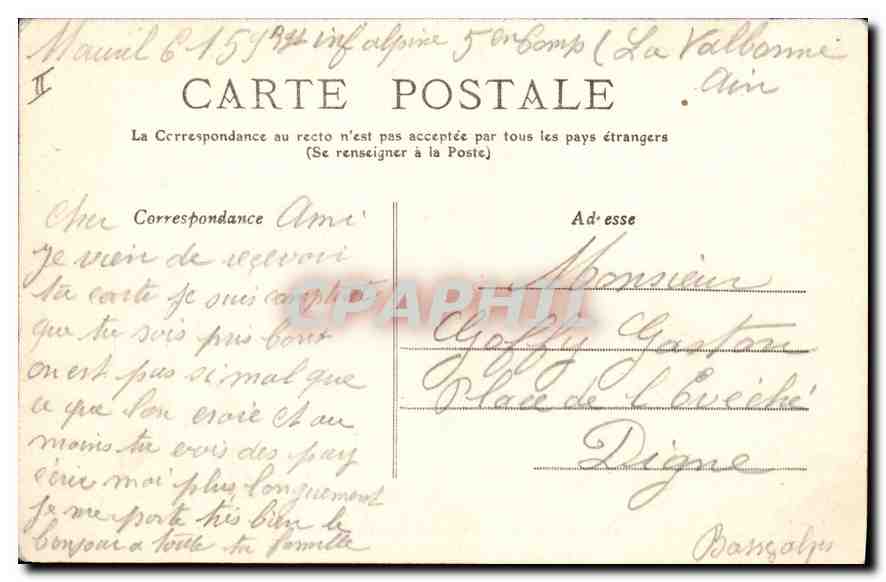 159 Rgt inf alpine 5 em Comp (La Valbonne
Ain
II
CARTE POSTALE
La Correspondance au recto n'est pas acceptée par tous les pays étrangers
(Se renseigner à la Poste)
Correspondance
Adresse
Cher Ami
Je vien de reçevoir
ta carte je suis comptent
que tu sois pris bont
on est pas si mal que
ce que l'on croie et au
moins tu vois des pay
écrie moi plus longuement
Je me porte très bien le
bonjour a toute ta famille
Monsieur
Goffy Gaston
Place de l'Evéché
Digne
Basses alpes
CPAPHIL